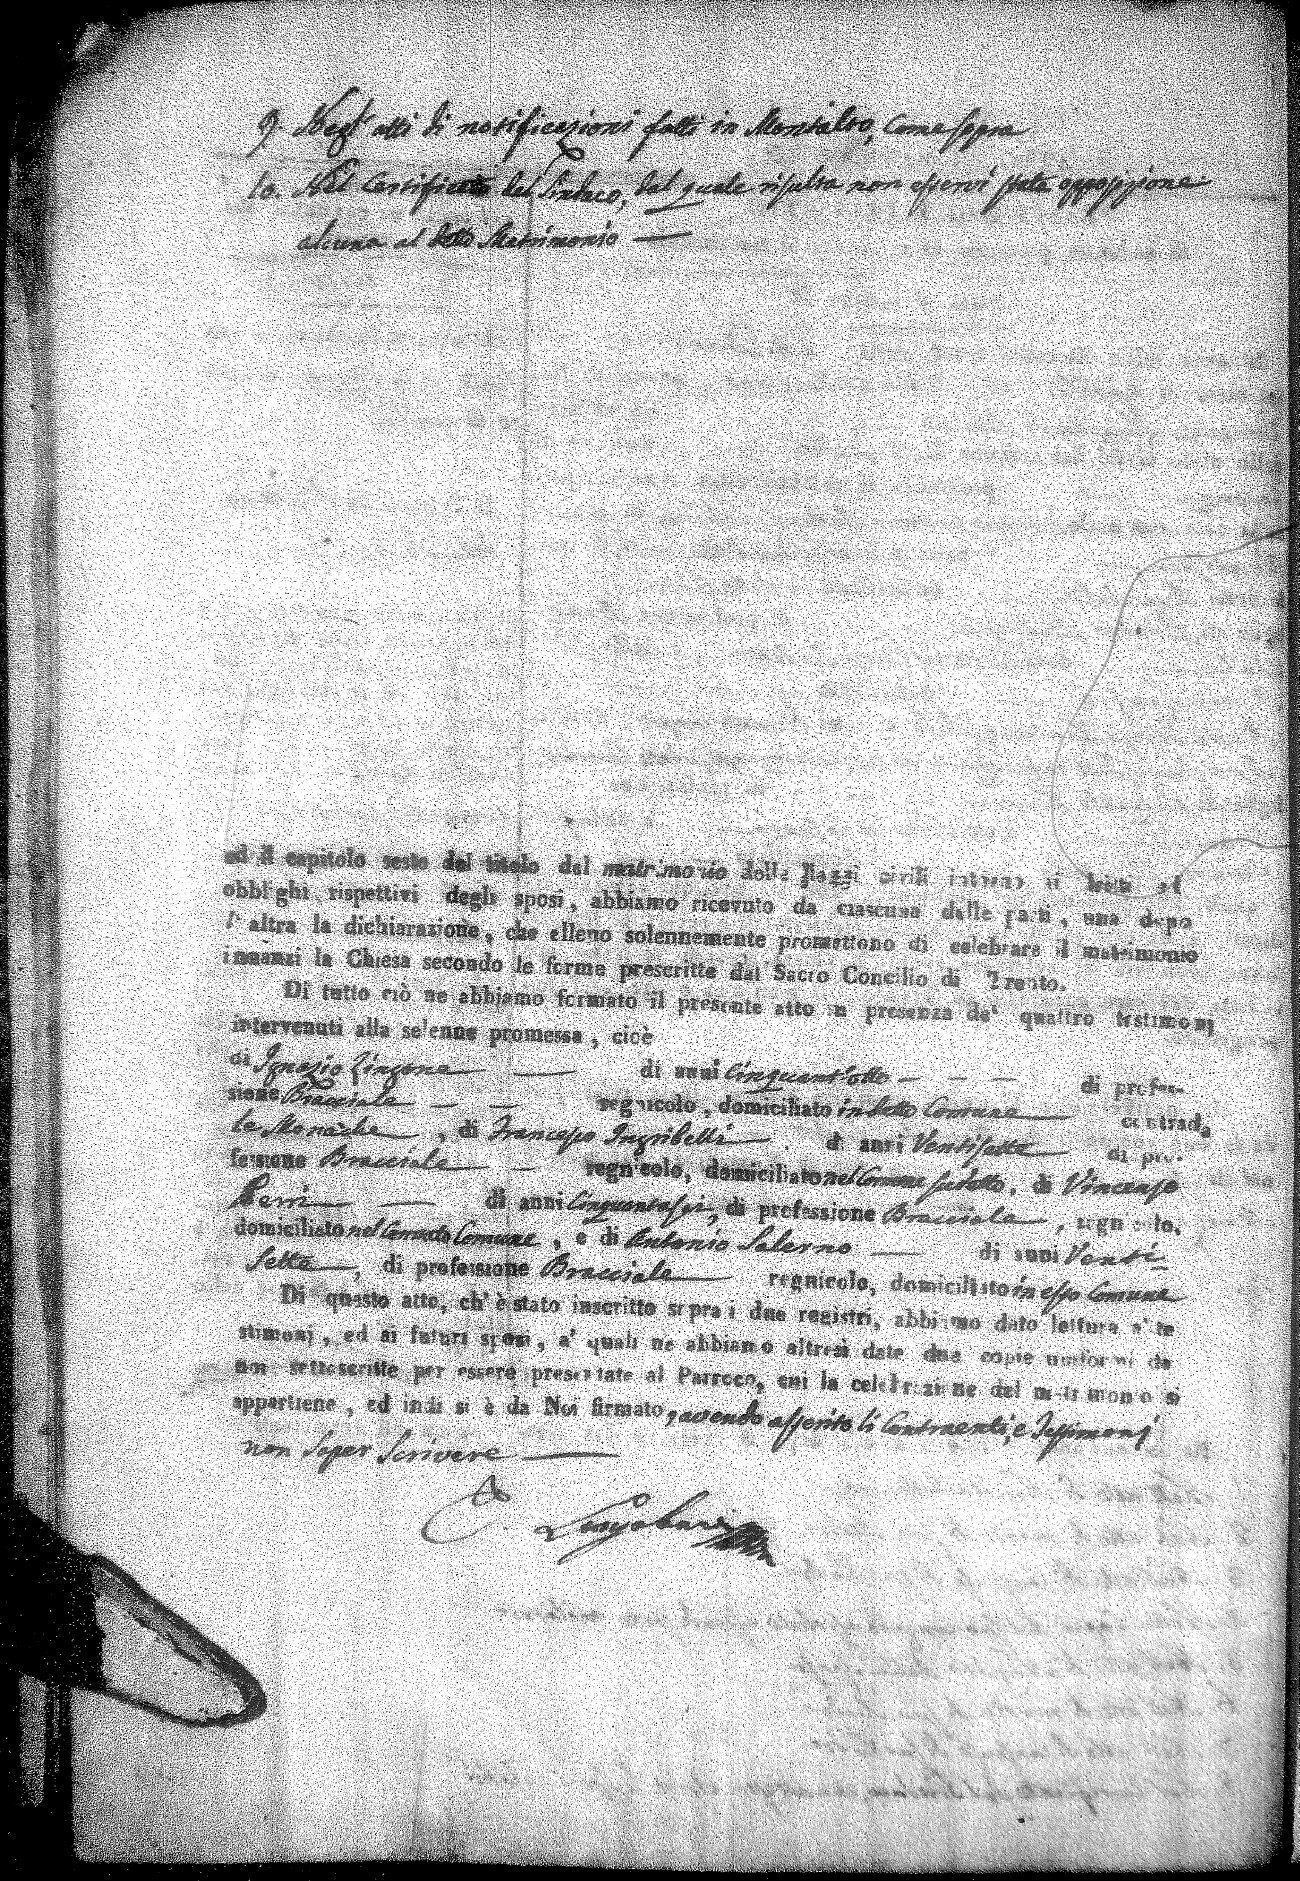 9. Negl' atti di notificazioni fatti in Montalto, come sopra
10. Nel Certificato del Sindaco, dal quale risulta non essersi stata opposizione
alcuna al detto Matrimonio —
ed il capitolo sesto del titolo del matrimonio delle leggi civili intorno ai dritti ed
obblighi rispettivi degli sposi, abbiamo ricevuto da ciascuna delle parti, una dopo
l'altra la dichiarazione, che elleno solennemente promettono di celebrare il matrimonio
innanzi la Chiesa secondo le forme prescritte dal Sacro Concilio di Trento.
Di tutto ciò ne abbiamo formato il presente atto in presenza de' quattro testimonj
intervenuti alla solenne promessa, cioè
di Ignazio Zingone — — di anni Cinquant'otto — — — di profes-
sione Bracciale — — regnicolo, domiciliato in detto Comune — contrada
le Monache —, di Francesco Ingribelli — di anni Ventisette — di pro-
fessione Bracciale — — regnicolo, domiciliato nel Comune sudetto, di Vincenzo
Perri — — di anni Cinquantasei, di professione Bracciale —, regnicolo,
domiciliato nel Cennato Comune, e di Antonio Salerno — di anni Venti
Sette —, di professione Bracciale — regnicolo, domiciliato in esso Comune
Di questo atto, ch' è stato inscritto sopra i due registri, abbiamo dato lettura a' te
stimonj, ed ai futuri sposi, a' quali ne abbiamo altresì date due copie uniformi da
noi sottoscritte per essere presentate al Parroco, cui la celebrazione del matrimonio si
appartiene, ed indi si è da Noi firmato, avendo asserito li Contraenti, e Testimonj
non saper Scrivere —